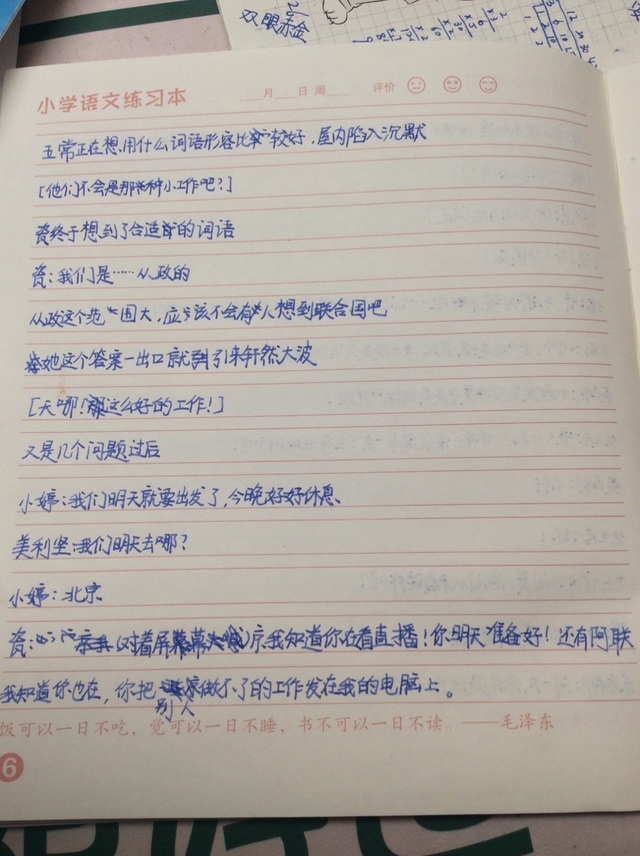 双眼示金
小学语文练习本 月 日 周 评价
五常正在想用什么词语形容比较好，屋内陷入沉默
[他们不会是那种小工作吧？]
瓷终于想到了合适的词语
瓷：我们是……从政的
从政这个范围大，应该不会有人想到联合国吧
她这个答案一出口就引来轩然大波
[天哪！这么好的工作！]
又是几个问题过后
小婷：我们明天就要出发了，今晚好好休息、
美利坚：我们明天去哪？
小婷：北京
瓷：(对着屏幕大喊)京我知道你在看直播！你明天准备好！还有阿联
我知道你也在，你把别人做不了的工作发在我的电脑上。
饭可以一日不吃，觉可以一日不睡，书不可以一日不读。——毛泽东
6